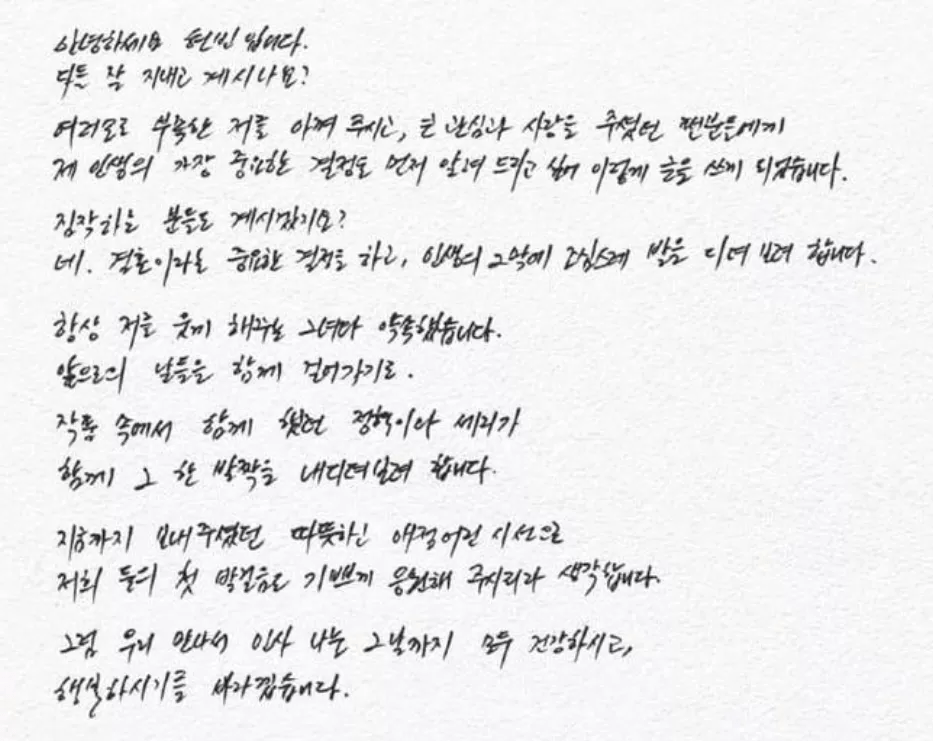 안녕하세요 현빈입니다.
다들 잘 지내고 계시나요?
여러모로 부족한 저를 아껴 주시고, 큰 관심과 사랑을 주셨던 팬분들에게
제 인생의 가장 중요한 결정을 먼저 알려 드리고 싶어 이렇게 글을 쓰게 되었습니다.
짐작하는 분들도 계시겠지요?
네. 결혼이라는 중요한 결정을 하고, 인생의 2막에 조심스레 발을 디뎌 보려 합니다.
항상 저를 웃게 해주는 그녀와 약속했습니다.
앞으로의 날들을 함께 걸어가기로.
작품 속에서 함께 했던 정혁이와 세리가
함께 그 한 발짝을 내디뎌보려 합니다.
지금까지 보내주셨던 따뜻하신 애정어린 시선으로
저희 둘의 첫 발걸음도 기쁘게 응원해 주시리라 생각합니다.
그럼 우리 만나서 인사 나눌 그날까지 모두 건강하시고,
행복하시기를 바라겠습니다.